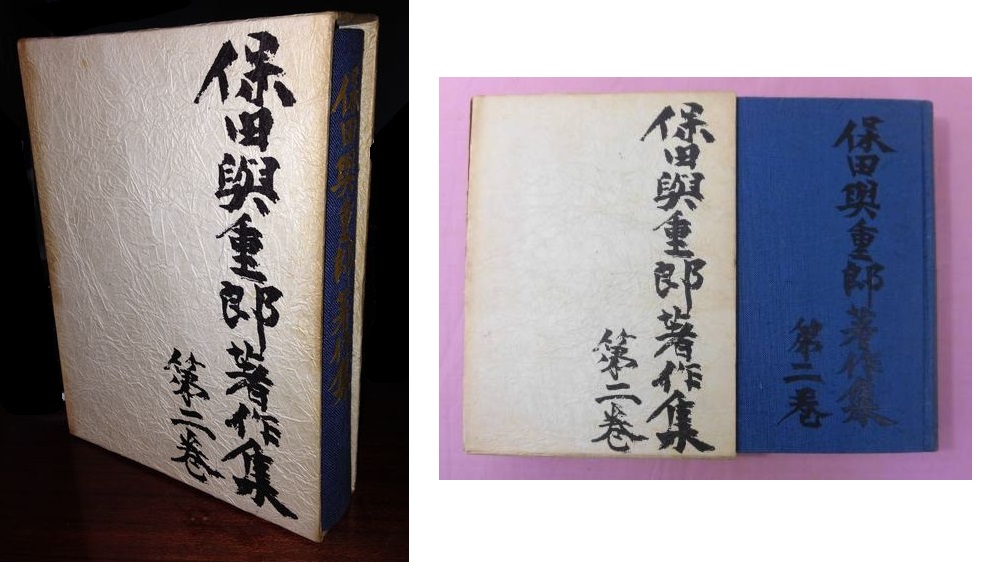 保田與重郎著作集
第二巻
保田與重郎著作集
保田與重郎著作集
第二巻
保田與重郎著作集
第二巻